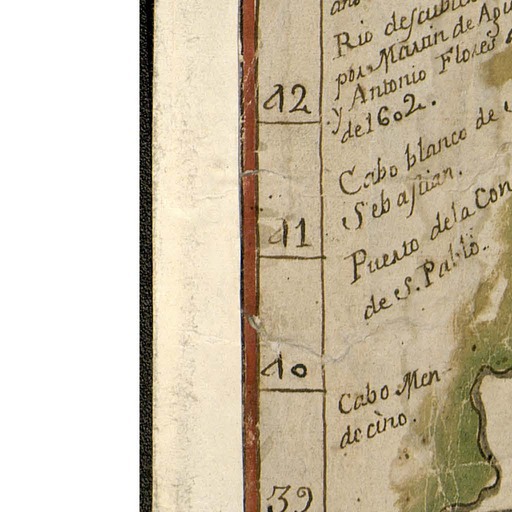 Rio descubie
por Martin de Agu
y Antonio Flores
de 1602.
42
Cabo blanco de S
Sebastian.
41
Puerto de la Con
de S. Pablo.
40
Cabo Men-
docino.
39